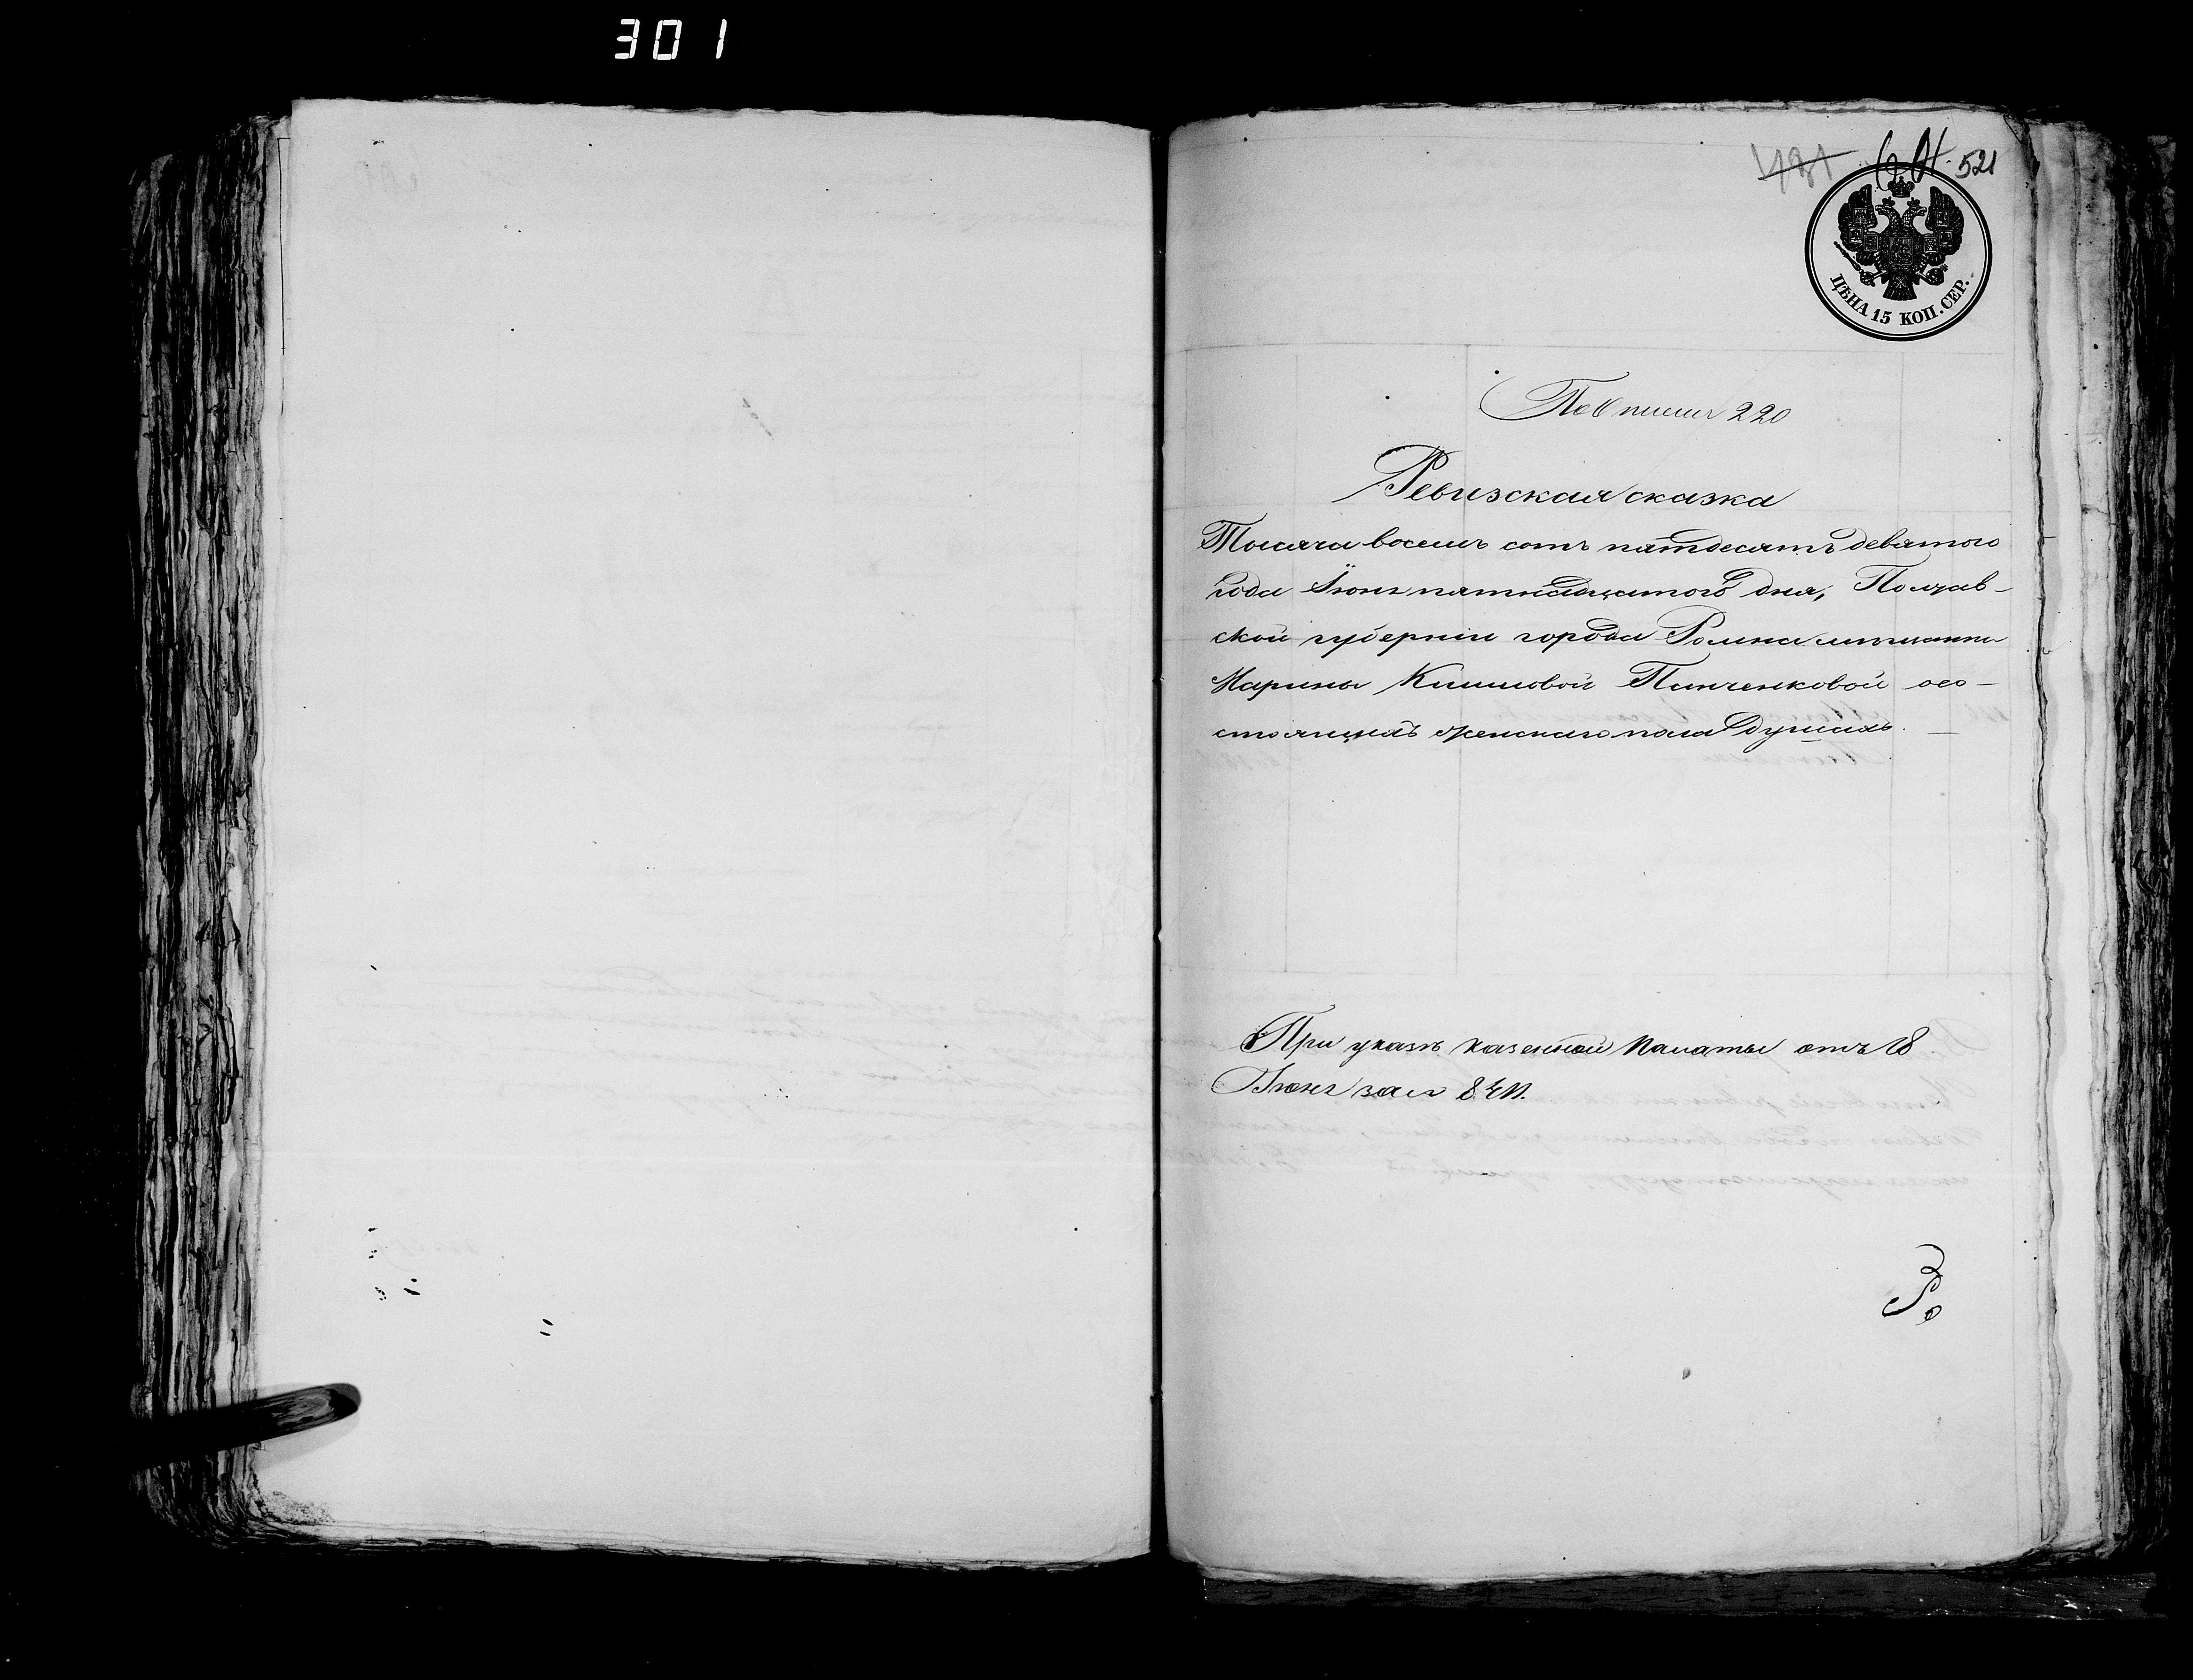 301
481 601. 521
ЦѢНА 15 КОП. СЕР.
По описи 220
Ревизская сказка
Тысяча восемь сотъ пятдесятъ девятого
года Іюня пятнадцатого дня, Полтав-
ской губерніи города Ромна мѣщанки
Марины Климовой Панченковой осо-
стоящихъ женскаго пола душахъ. —
При указѣ казенной палаты отъ 18
Іюня за №